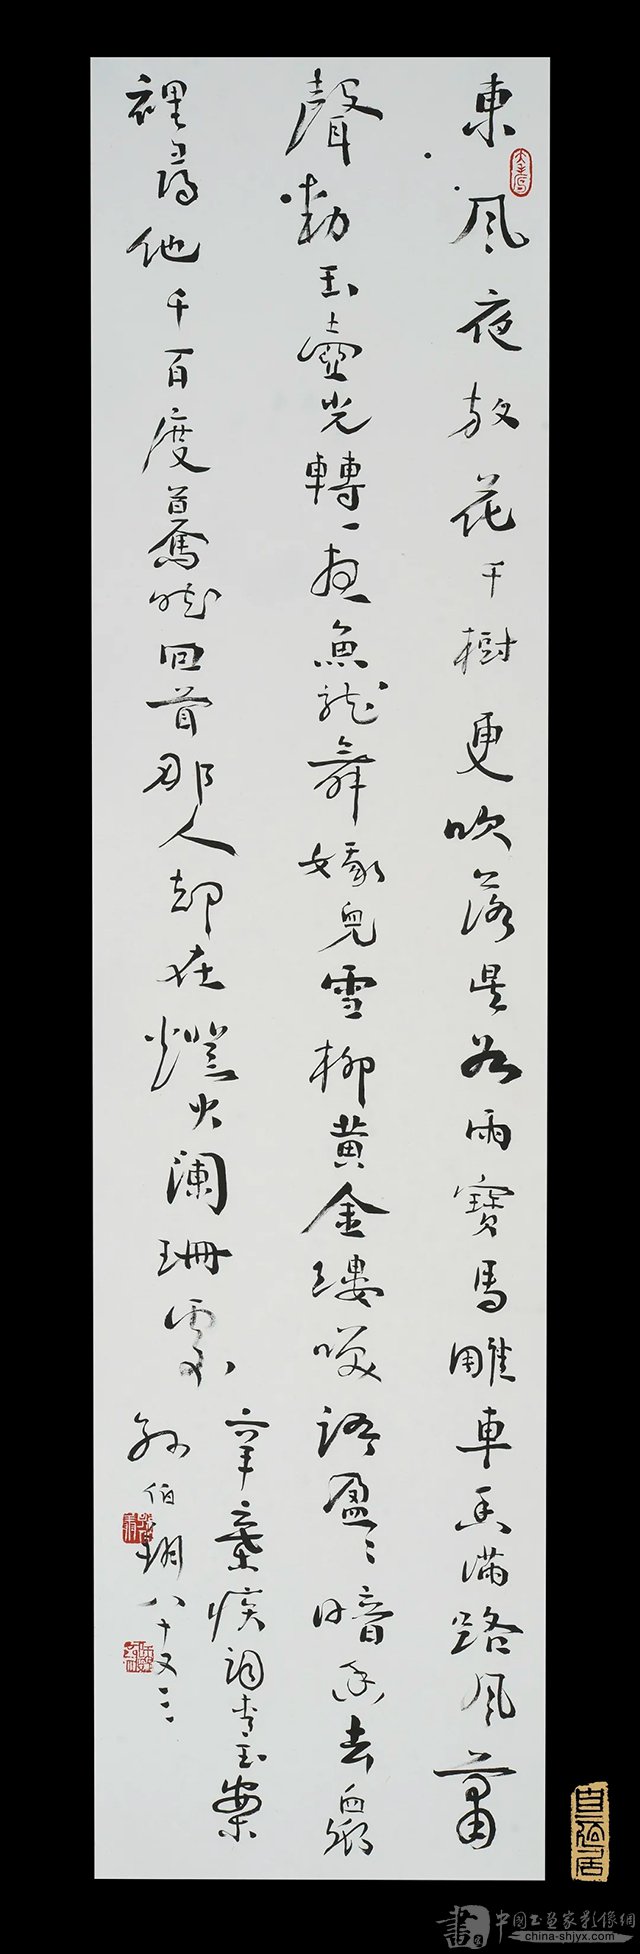 東風夜放花千樹更吹落星如雨寶馬雕車香滿路風蕭
聲動玉壺光轉一夜魚龍舞娥兒雪柳黃金縷咲語盈〻暗香去眾
裡尋他千百度驀然回首那人却在燈火瀾珊處
辛棄疾詞青玉案
孫伯翔八十又三
中国书画家影像網
china-shjyx.com